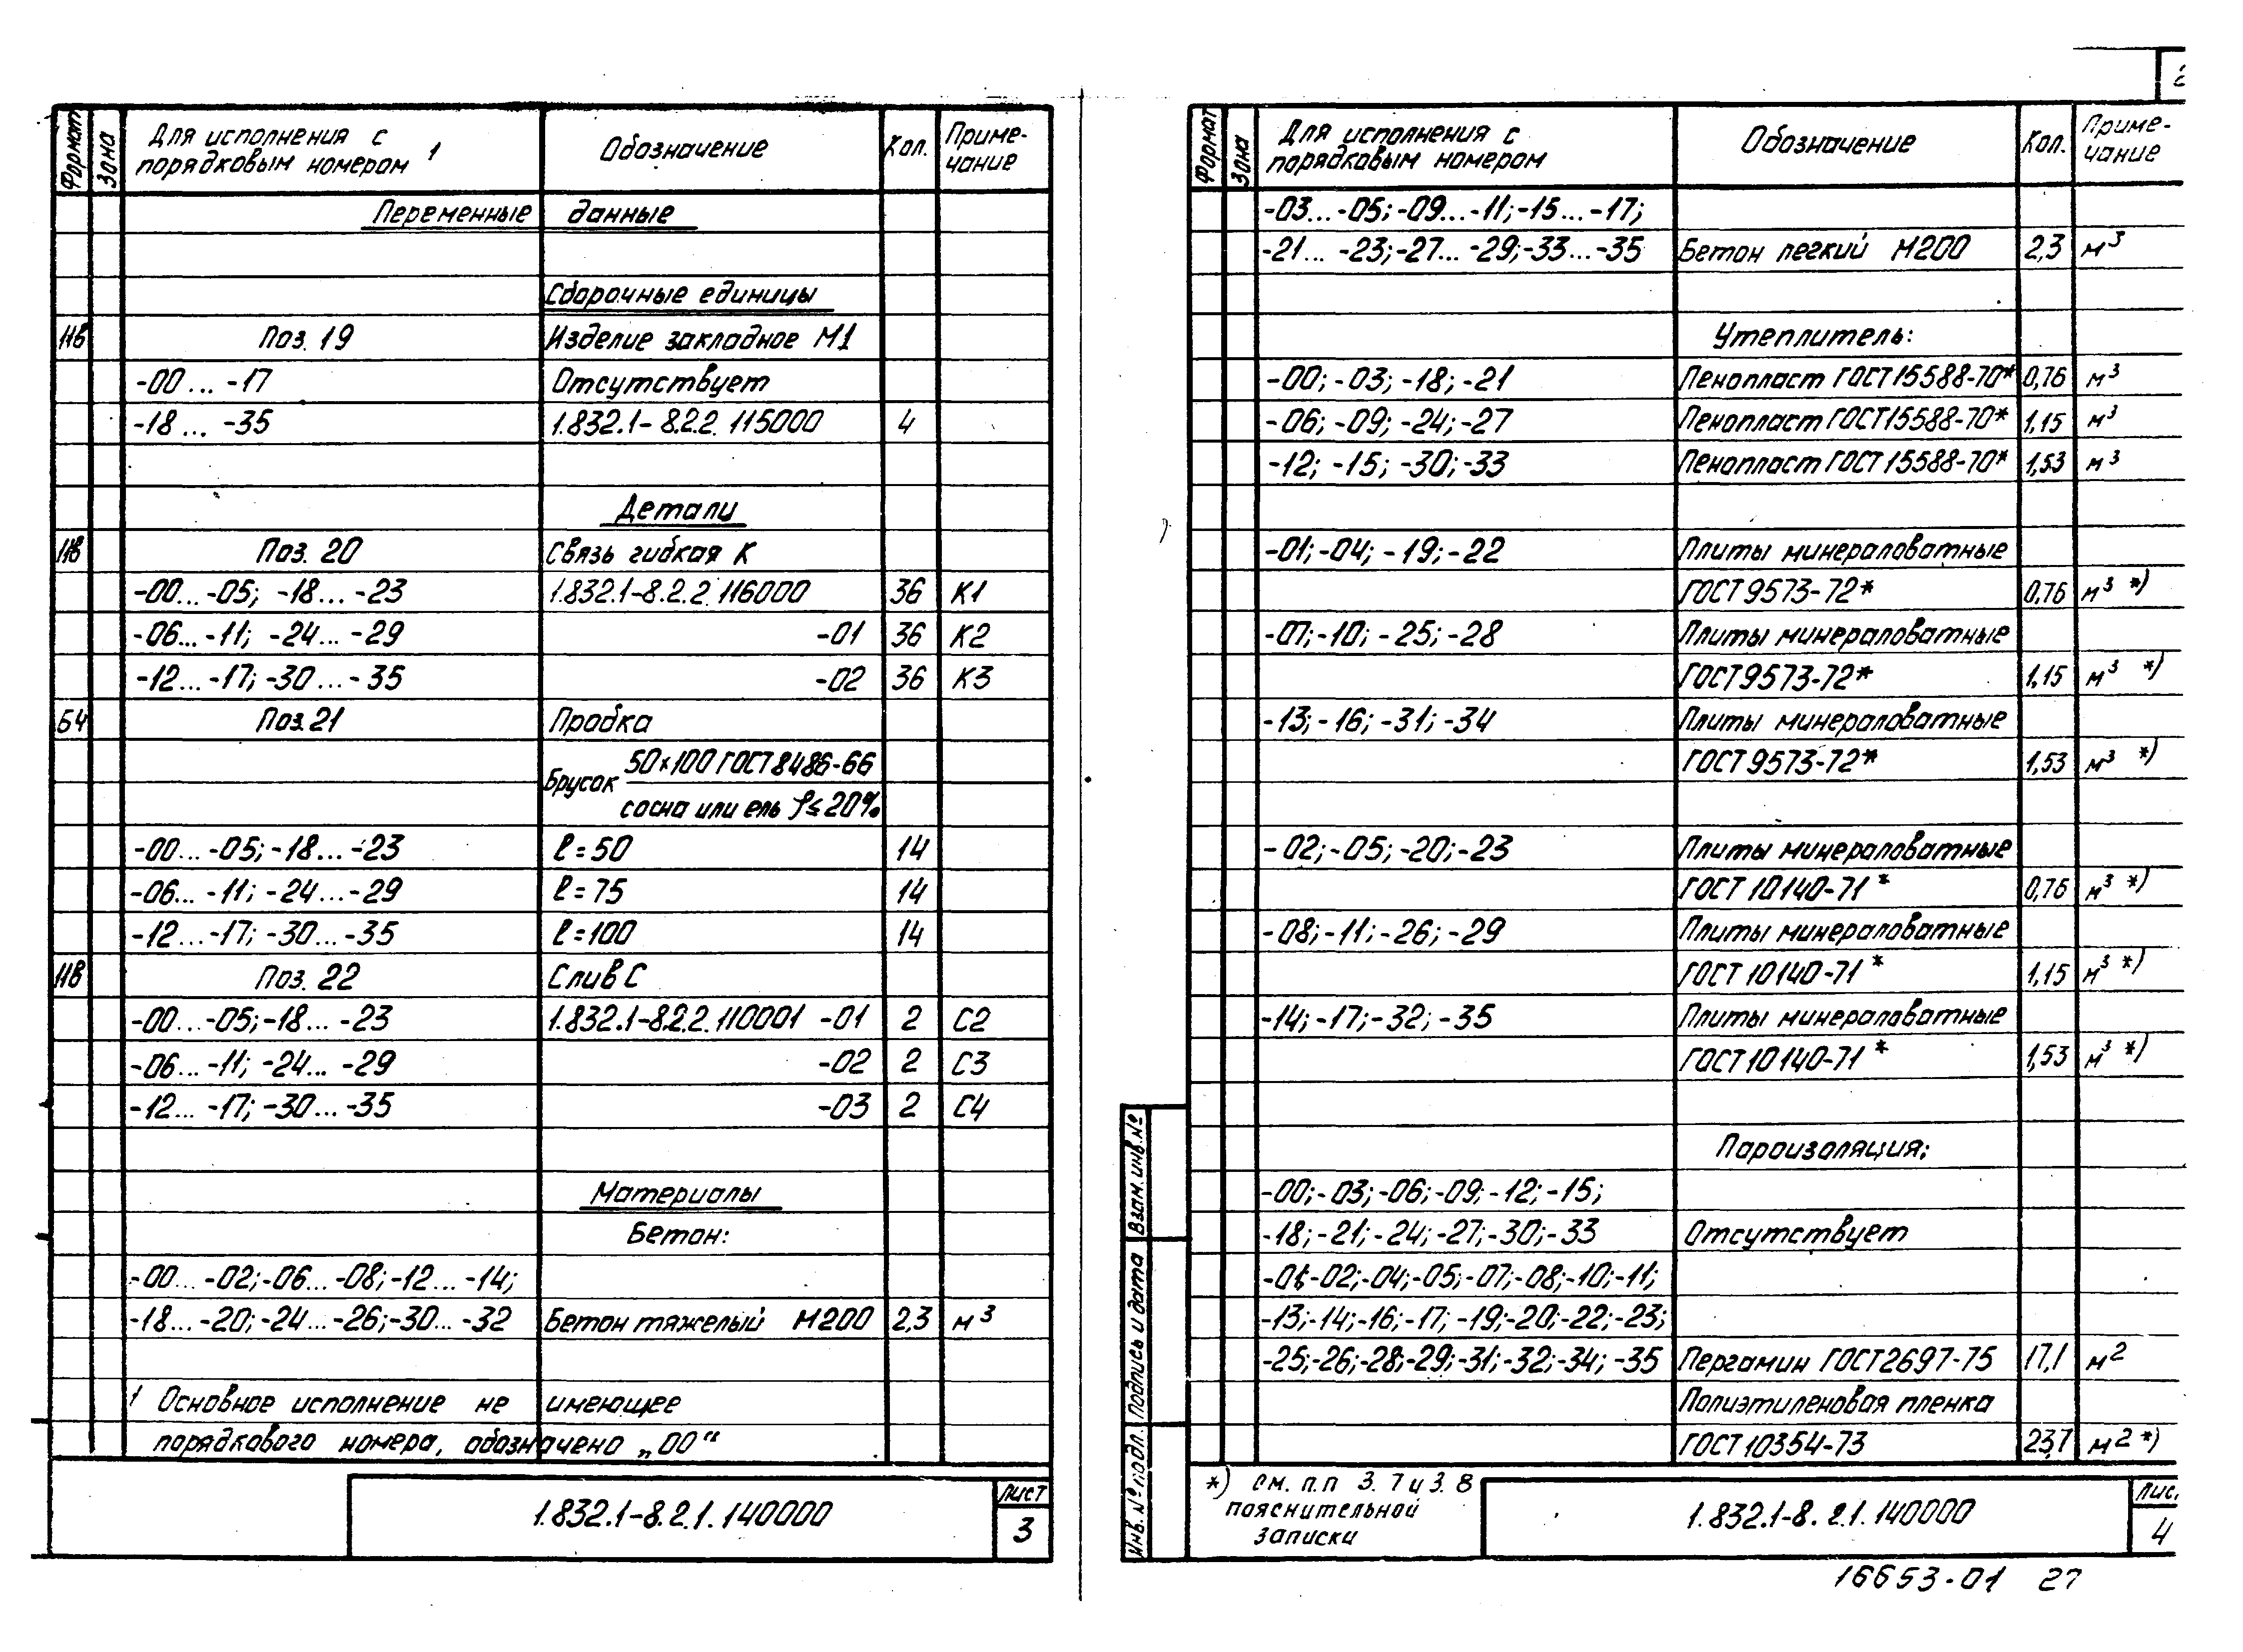 Формат Зона Для исполнения с порядковым номером 1 Обозначение Кол. Приме-чание
Переменные данные
Сборочные единицы
11в Поз. 19 Изделие закладное М1
-00... -17 Отсутствует
-18... -35 1.832.1-8.2.2. 115000 4
Детали
11в Поз. 20 Связь гибкая К
-00...-05; -18...-23 1.832.1-8.2.2. 116000 36 К1
-06...-11; -24...-29 -01 36 К2
-12...-17; -30...-35 -02 36 К3
БЧ Поз. 21 Пробка
Брусок 50×100 ГОСТ 8486-66
сосна или ель φ≤20%
-00...-05; -18...-23 ℓ=50 14
-06...-11; -24...-29 ℓ=75 14
-12...-17; -30...-35 ℓ=100 14
11в Поз. 22 Слив С
-00...-05; -18...-23 1.832.1-8.2.2. 110001 -01 2 С2
-06...-11; -24...-29 -02 2 С3
-12...-17; -30...-35 -03 2 С4
Материалы
Бетон:
-00...-02; -06...-08; -12...-14;
-18...-20; -24...-26; -30...-32 Бетон тяжелый М200 2,3 м³
1 Основное исполнение не имеющее
порядкового номера, обозначено „00“
1.832.1-8.2.1. 140000 Лист
3
Формат Зона Для исполнения с порядковым номером Обозначение Кол. Приме-чание
-03...-05; -09...-11; -15...-17;
-21...-23; -27...-29; -33...-35 Бетон легкий М200 2,3 м³
Утеплитель:
-00; -03; -18; -21 Пенопласт ГОСТ 15588-70* 0,76 м³
-06; -09; -24; -27 Пенопласт ГОСТ 15588-70* 1,15 м³
-12; -15; -30; -33 Пенопласт ГОСТ 15588-70* 1,53 м³
-01; -04; -19; -22 Плиты минераловатные
ГОСТ 9573-72* 0,76 м³ *)
-07; -10; -25; -28 Плиты минераловатные
ГОСТ 9573-72* 1,15 м³ *)
-13; -16; -31; -34 Плиты минераловатные
ГОСТ 9573-72* 1,53 м³ *)
-02; -05; -20; -23 Плиты минераловатные
ГОСТ 10140-71* 0,76 м³ *)
-08; -11; -26; -29 Плиты минераловатные
ГОСТ 10140-71* 1,15 м³ *)
-14; -17; -32; -35 Плиты минераловатные
ГОСТ 10140-71* 1,53 м³ *)
Пароизоляция:
-00; -03; -06; -09; -12; -15;
-18; -21; -24; -27; -30; -33 Отсутствует
-01; -02; -04; -05; -07; -08; -10; -11;
-13; -14; -16; -17; -19; -20; -22; -23;
-25; -26; -28; -29; -31; -32; -34; -35 Пергамин ГОСТ 2697-75 17,1 м²
Полиэтиленовая пленка
ГОСТ 10354-73 23,7 м² *)
Инв. № подл. Подпись и дата Взам. инв. №
*) см. п.п 3.7 и 3.8
пояснительной
записки
1.832.1-8.2.1. 140000 Лис.
4
16653-01 27